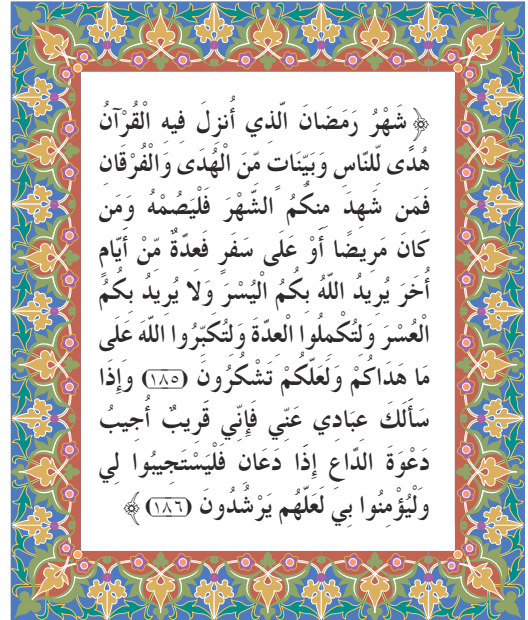 ﴿ شَهْرُ رَمَضَانَ الَّذِي أُنزِلَ فِيهِ الْقُرْآنُ
هُدًى لِّلنَّاسِ وَبَيِّنَاتٍ مِّنَ الْهُدَى وَالْفُرْقَانِ
فَمَن شَهِدَ مِنكُمُ الشَّهْرَ فَلْيَصُمْهُ وَمَن
كَانَ مَرِيضًا أَوْ عَلَى سَفَرٍ فَعِدَّةٌ مِّنْ أَيَّامٍ
أُخَرَ يُرِيدُ اللَّهُ بِكُمُ الْيُسْرَ وَلا يُرِيدُ بِكُمُ
الْعُسْرَ وَلِتُكْمِلُوا الْعِدَّةَ وَلِتُكَبِّرُوا اللَّهَ عَلَى
مَا هَدَاكُمْ وَلَعَلَّكُمْ تَشْكُرُونَ (١٨٥) وَإِذَا
سَأَلَكَ عِبَادِي عَنِّي فَإِنِّي قَرِيبٌ أُجِيبُ
دَعْوَةَ الدَّاعِ إِذَا دَعَانِ فَلْيَسْتَجِيبُوا لِي
وَلْيُؤْمِنُوا بِي لَعَلَّهُم يَرْشُدُونَ (١٨٦) ﴾